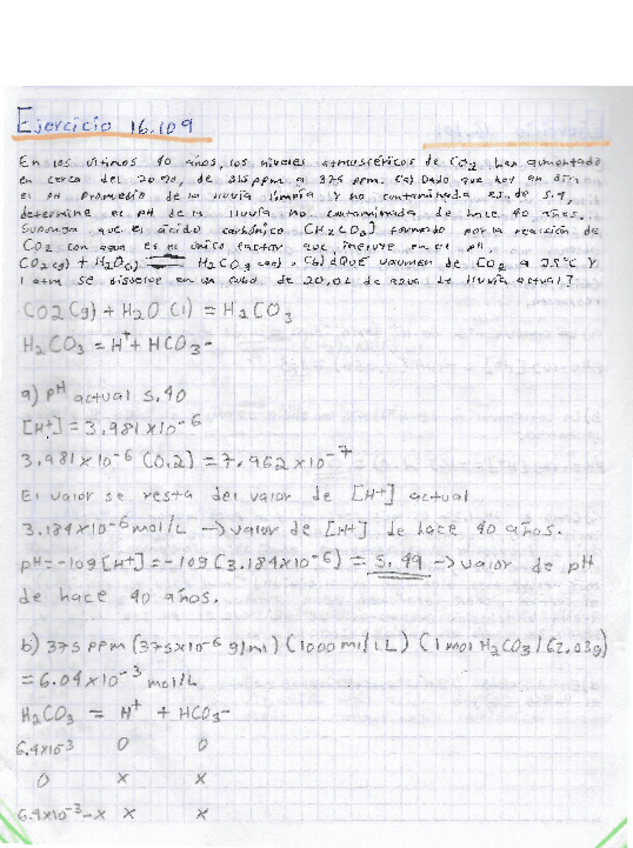 Ejercicio 16.109
En los últimos 40 años, los niveles atmosféricos de CO2 han aumentado
en cerca del 20%, de 315 ppm a 375 ppm. (a) Dado que hoy en día
el pH promedio de la lluvia limpia y no contaminada es de 5.4,
determine el pH de la lluvia no contaminada de hace 40 años.
Suponga que el ácido carbónico (H2CO3) formado por la reacción de
CO2 con agua es el único factor que influye en el pH.
CO2(g) + H2O(l) ⇌ H2CO3(ac). (b) ¿Qué volumen de CO2 a 25°C y
1 atm se disuelve en un cubo de 20.0L de agua de lluvia actual?
CO2(g) + H2O(l) = H2CO3
H2CO3 = H+ + HCO3-
a) pH actual 5.40
[H+] = 3.981x10-6
3.981x10-6 (0.2) = 7.962x10-7
El valor se resta del valor de [H+] actual
3.184x10-6 mol/L → valor de [H+] de hace 40 años.
pH = -log[H+] = -log(3.184x10-6) = 5.49 → valor de pH
de hace 40 años.
b) 375 ppm (375x10-6 g/ml) (1000 ml/1L) (1 mol H2CO3/62.03g)
= 6.04x10-3 mol/L
H2CO3 = H+ + HCO3-
6.4x10-3 0 0
0 x x
6.4x10-3-x x x